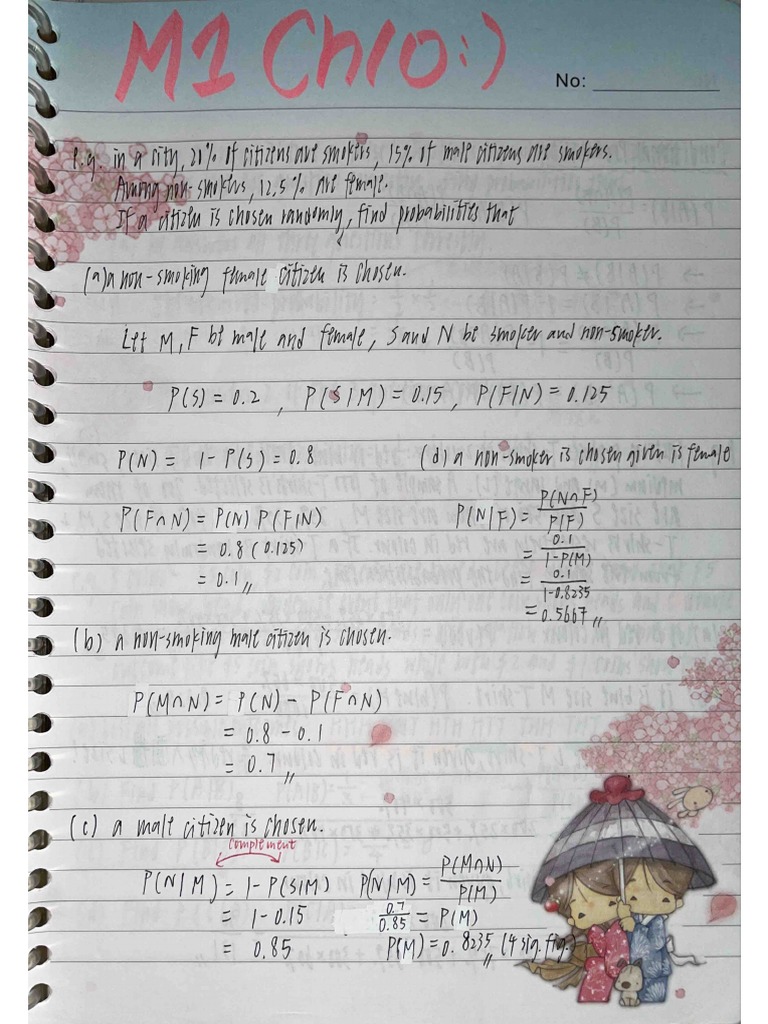 M1 Ch10:)
No:
e.g. in a city, 20% of citizens are smokers, 15% of male citizens are smokers.
Among non-smokers, 12.5% are female.
If a citizen is chosen randomly, find probabilities that
(a) a non-smoking female citizen is chosen.
Let M, F be male and female, S and N be smoker and non-smoker.
P(S) = 0.2 , P(S|M) = 0.15, P(F|N) = 0.125
P(N) = 1 - P(S) = 0.8
P(F∩N) = P(N) P(F|N)
= 0.8 (0.125)
= 0.1
(d) a non-smoker is chosen given is female
P(N|F) = P(N∩F)/P(F)
= 0.1/1-P(M)
= 0.1/1-0.8235
= 0.5667
(b) a non-smoking male citizen is chosen.
P(M∩N) = P(N) - P(F∩N)
= 0.8 - 0.1
= 0.7
(c) a male citizen is chosen.
complement
P(N|M) = 1 - P(S|M)
= 1 - 0.15
= 0.85
P(N|M) = P(M∩N)/P(M)
0.7/0.85 = P(M)
P(M) = 0.8235 (4 sig. fig.)